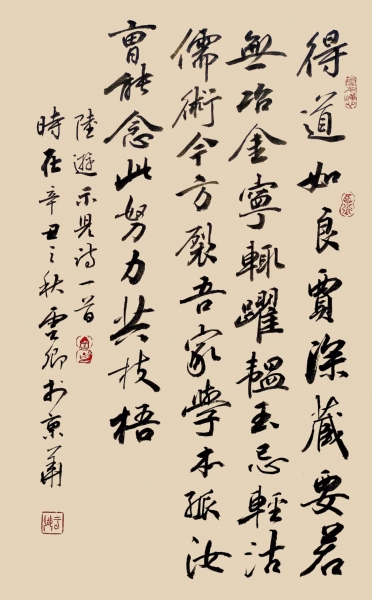 得道如良賈深藏要若
無冶金寧輒躍韞玉忌輕沽
儒術今方裂吾家學本孤汝
曹能念此努力共枝梧
陸遊示兒詩一首
時在辛丑之秋雲卿於京華